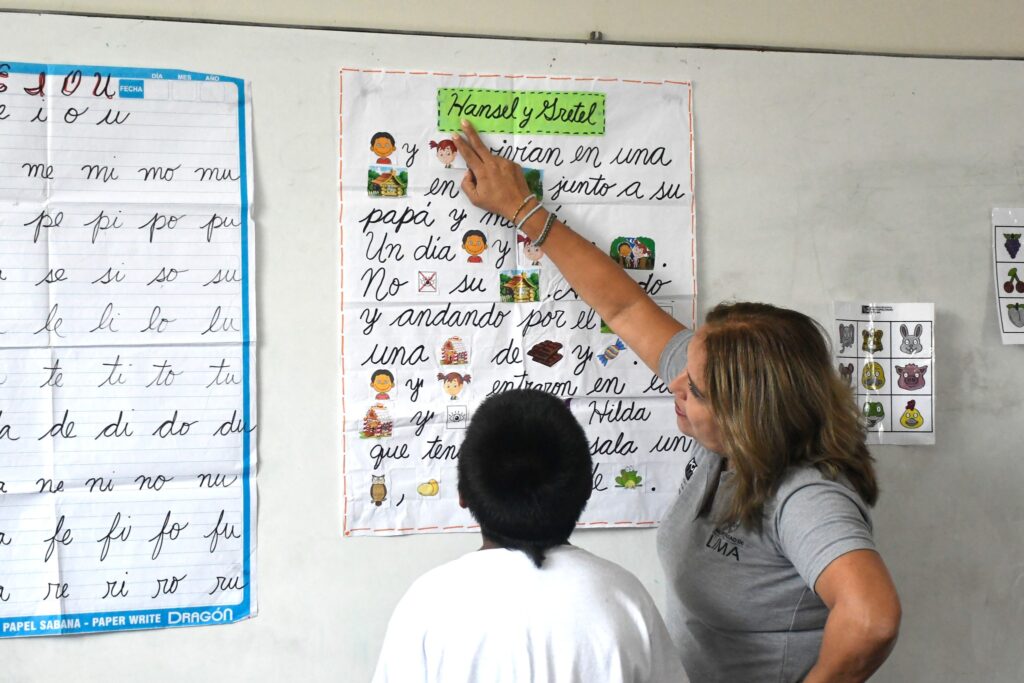 I O U
DÍA MES AÑO
FECHA
e i o u
me mi mo mu
pe pi po pu
se si so su
le li lo lu
te ti to tu
a de di do du
a ne ni no nu
a fe fi fo fu
a re ri ro ru
PAPEL SABANA - PAPER WRITE DRAGÓN
Hansel y Gretel
y vivían en una
en junto a su
papá y
Un día y .
No su .
y andando por el
una de y .
y entraron en la
y Hilda
que sala un
, .
LIMA